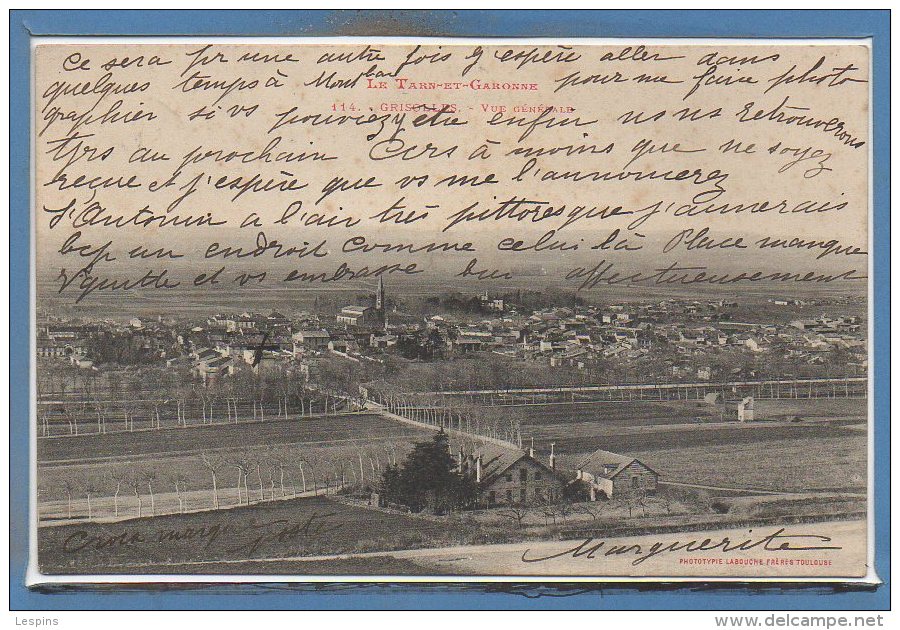 Ce sera pr une autre fois j'espère aller dans
quelques temps à Montban pour me faire photo
LE TARN-ET-GARONNE
graphier si vs pouviez y etre enfin ns ns retrouverons
114. - GRISOLLES. - VUE GÉNÉRALE
tjrs au prochain Cers à moins que ne soyez
reçue et j'espère que vs me l'annoncerez
St Antonin a l'air très pittoresque j'aimerais
bcp un endroit comme celui là Place manque
vs quitte et vs embrasse bien affectueusement
Croix marque poste
Marguerite
PHOTOTYPIE LABOUCHE FRÈRES TOULOUSE
Lespins
www.delcampe.net